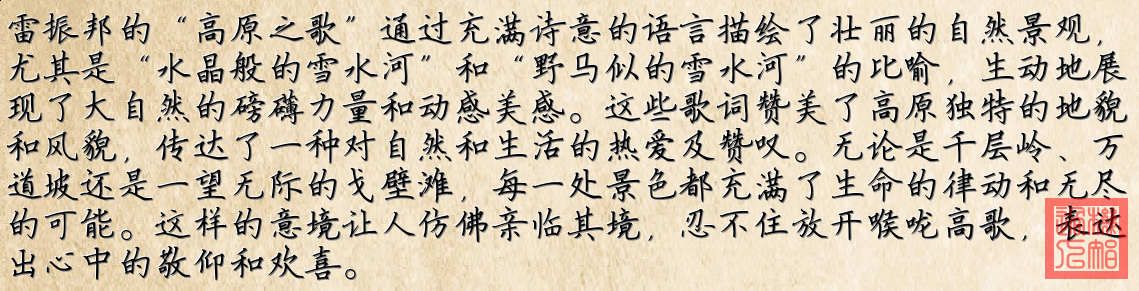 雷振邦的“高原之歌”通过充满诗意的语言描绘了壮丽的自然景观，
尤其是“水晶般的雪水河”和“野马似的雪水河”的比喻，生动地展
现了大自然的磅礴力量和动感美感。这些歌词赞美了高原独特的地貌
和风貌，传达了一种对自然和生活的热爱及赞叹。无论是千层岭、万
道坡还是一望无际的戈壁滩，每一处景色都充满了生命的律动和无尽
的可能。这样的意境让人仿佛亲临其境，忍不住放开喉咙高歌，表达
出心中的敬仰和欢喜。